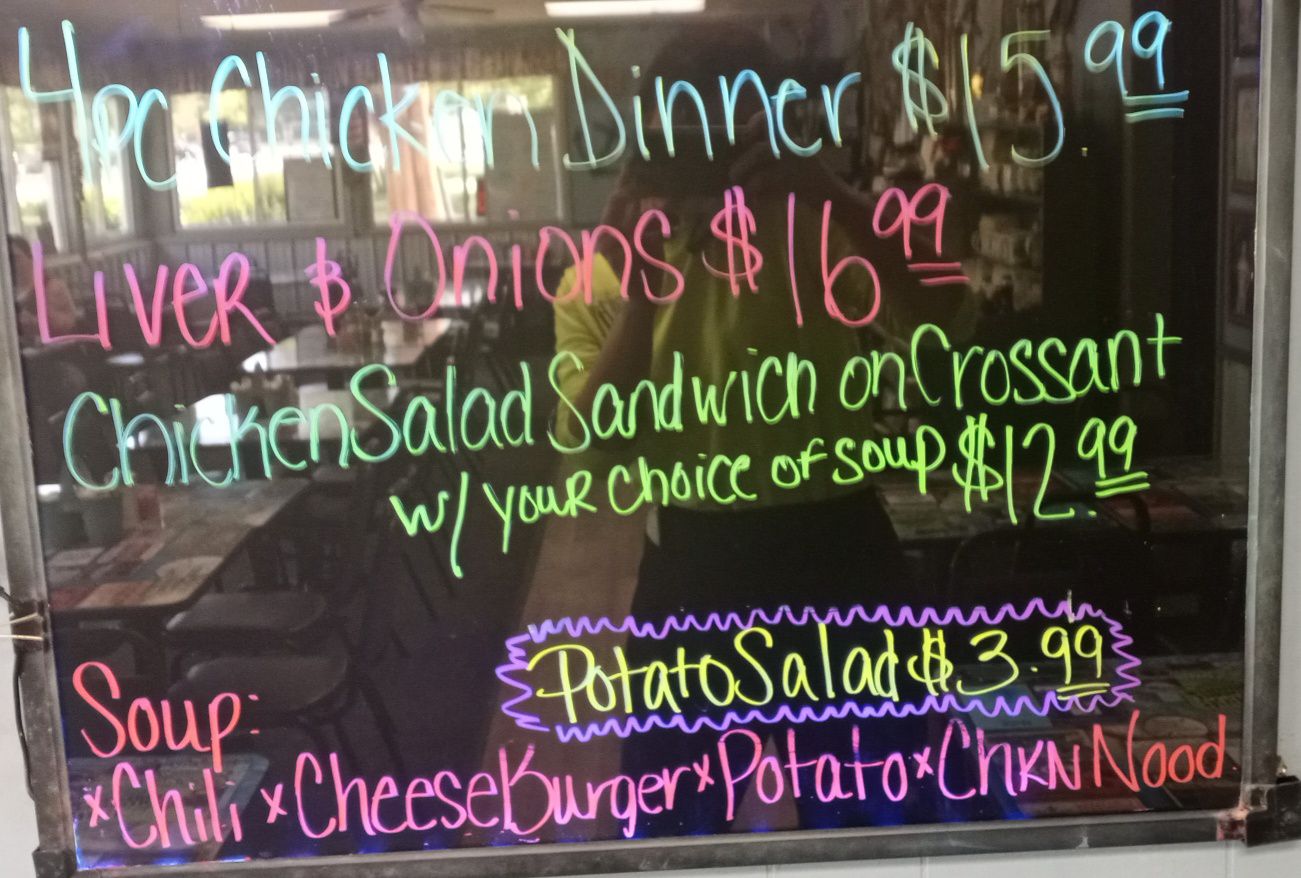 4pc Chicken Dinner $15.99
Liver & Onions $16 99
Chicken Salad Sandwich on Crossant
w/ your choice of soup $12.99
Potato Salad $3.99
Soup:
×Chili ×CheeseBurger ×Potato ×Chkn Nood